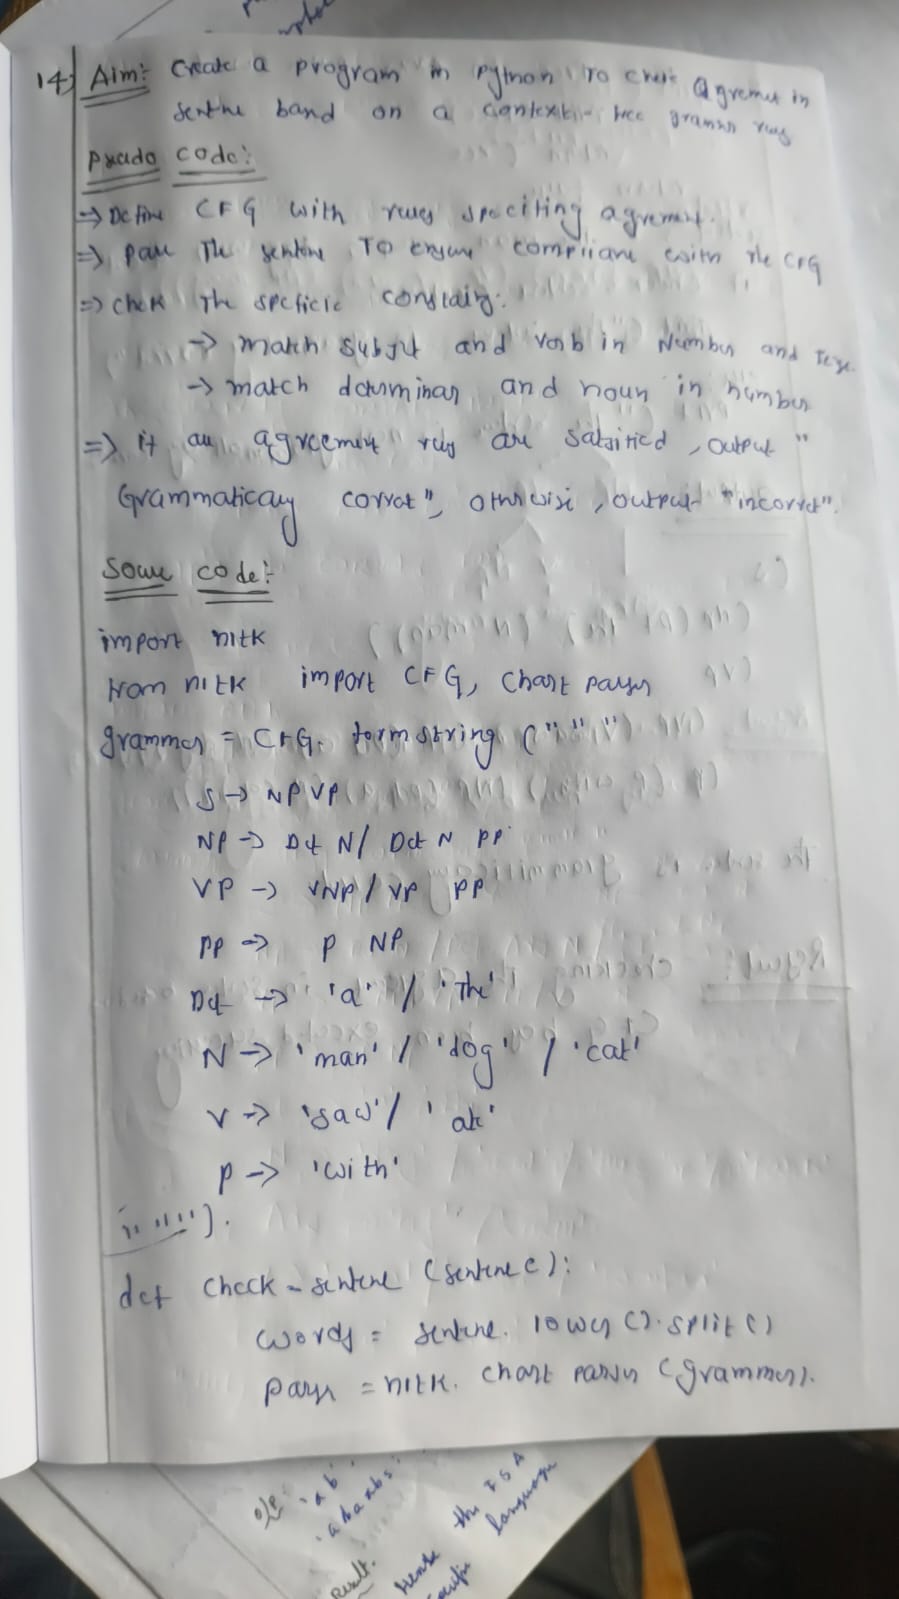 14) Aim:- Create a program in Python To chek Agremet in
sentne band on a context-free gramar
Psudo code:-
→ Define CFG with rules speciting agrement.
⇒ parse The sentene To ensure compliane with The CFG
⇒ chek The speficic constaing:
→ match subjet and verb in Number and
→ match and noun in number
⇒ if all agreement are satsified, output "
Grammaticaly corrat", otherwise, output "incorret".
Soure code:-
import nltk
from nltk import CFG, Chart parser
grammer = CFG. formstring ("""
S → NP VP
NP → Det N / Det N PP
VP → V NP / VP PP
PP → P NP
Det → 'a' / 'The'
N → 'man' / 'dog' / 'cat'
V → 'saw' / 'ate'
P → 'with'
""").
def Check - sentene (sentence):
words = sentene. lower (). split ()
parser = nltk. chart parser (grammer).
o/p:
'ab'
Result.
Hense the FSA
language